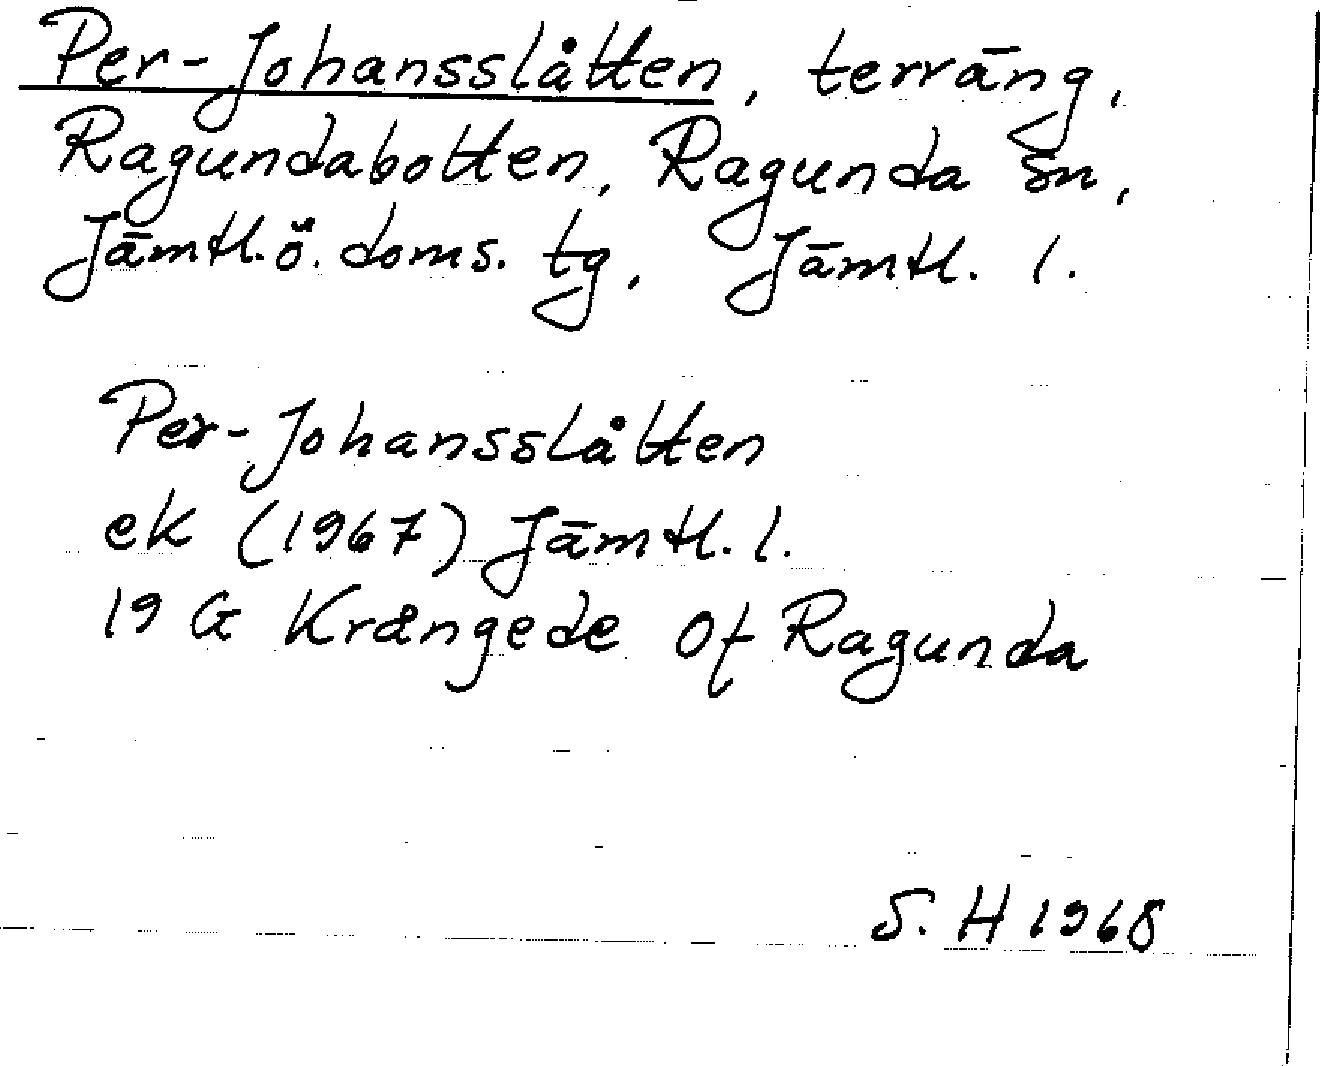 Per-Johansslåtten, terräng,
Ragundabotten, Ragunda sn,
Jämtl. ö. doms. tg, Jämtl. l.
Per-Johansslåtten
ek (1967) Jämtl. l.
19 G Krångede Of Ragunda
S. H 1968